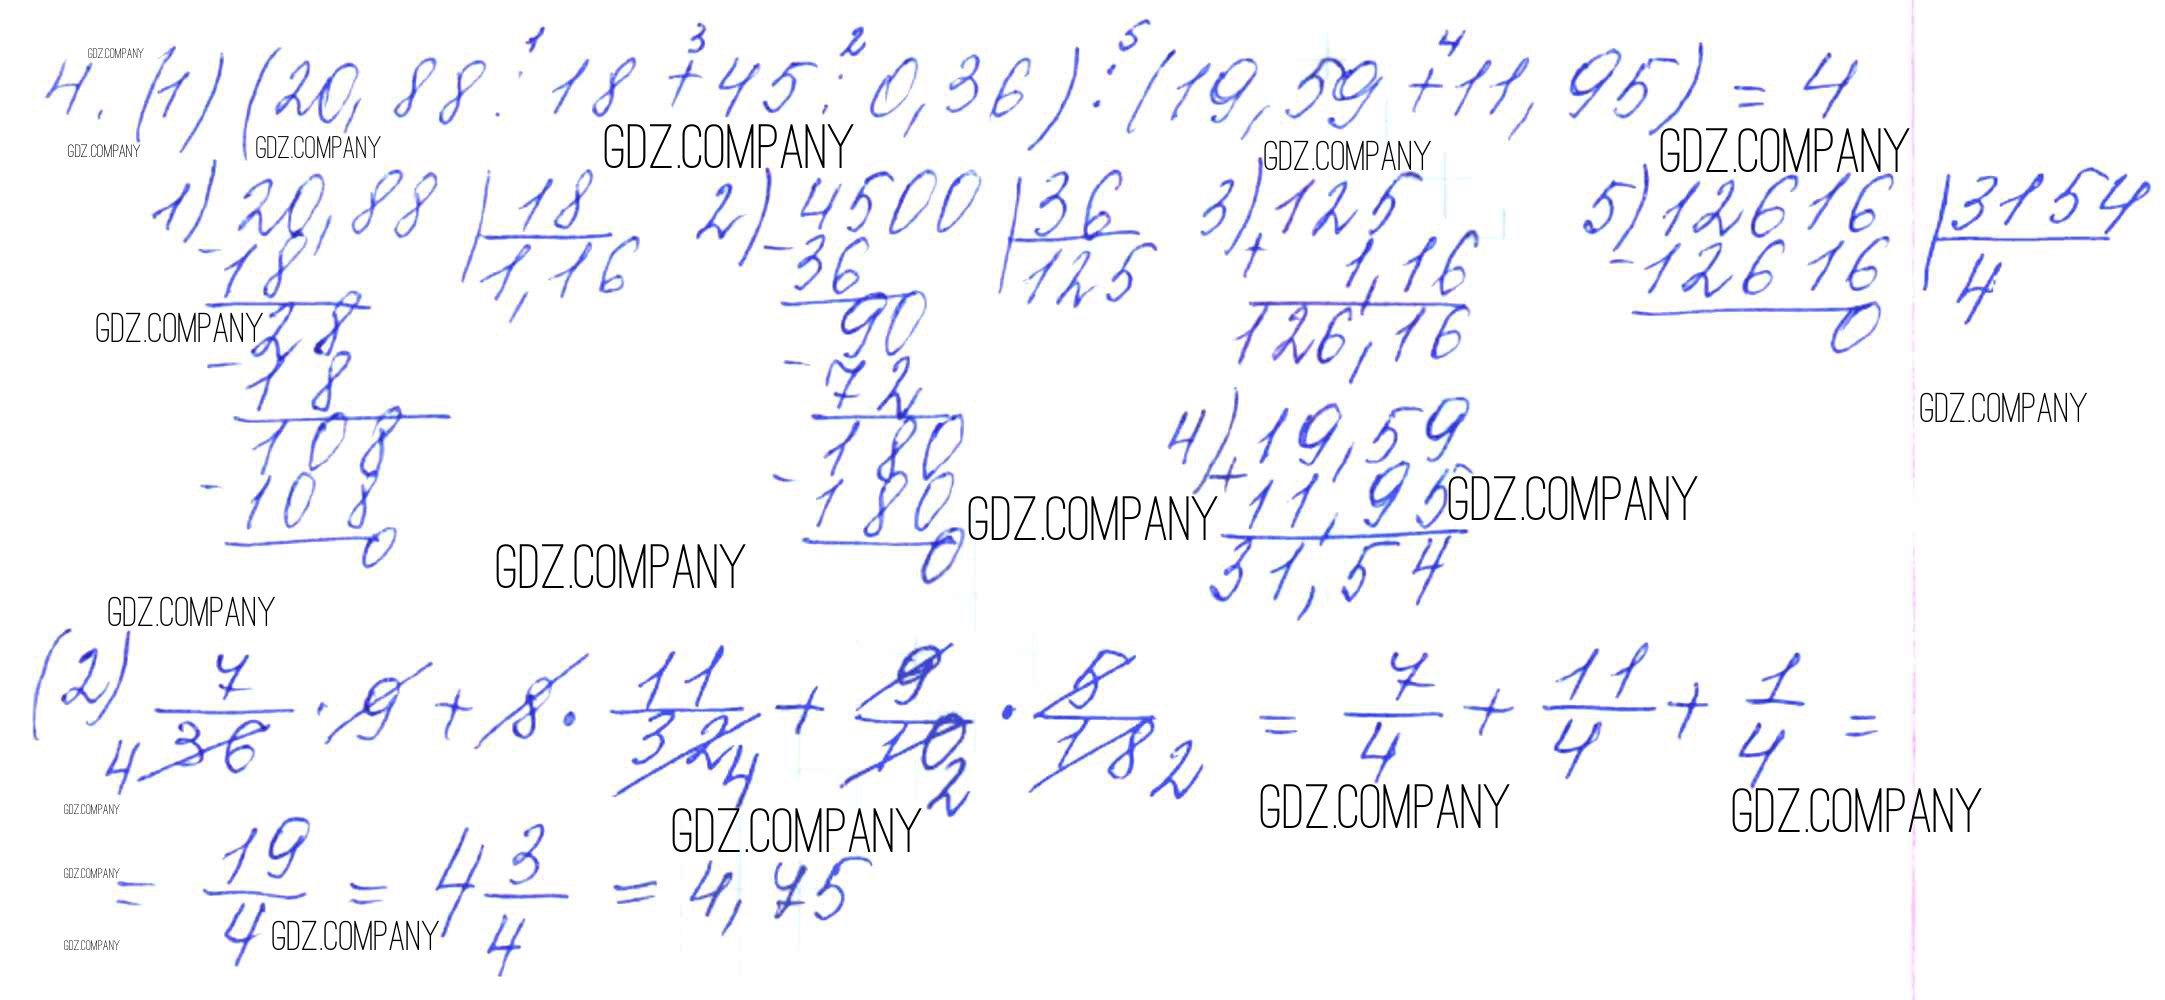 GDZ.COMPANY
1 3 2 5 4
4. (1) (20,88 : 18 + 45 : 0,36) : (19,59 + 11,95) = 4
GDZ.COMPANY GDZ.COMPANY GDZ.COMPANY GDZ.COMPANY GDZ.COMPANY
1) 20,88 | 18 2) 4500 | 36 3) 125 5) 12616 | 3154
- 18 1,16 - 36 125 + 1,16 - 12616 4
GDZ.COMPANY 28 90 126,16 0
- 18 - 72
GDZ.COMPANY
108 180 4) 19,59
- 108 - 180 + 11,95
GDZ.COMPANY GDZ.COMPANY
0 0 31,54
GDZ.COMPANY
GDZ.COMPANY
(2) 7/36 4 · 9 + 8 · 11/32 4 + 9/10 2 · 5/18 2 = 7/4 + 11/4 + 1/4 =
GDZ.COMPANY GDZ.COMPANY GDZ.COMPANY GDZ.COMPANY
GDZ.COMPANY
= 19/4 = 4 3/4 = 4,75
GDZ.COMPANY GDZ.COMPANY